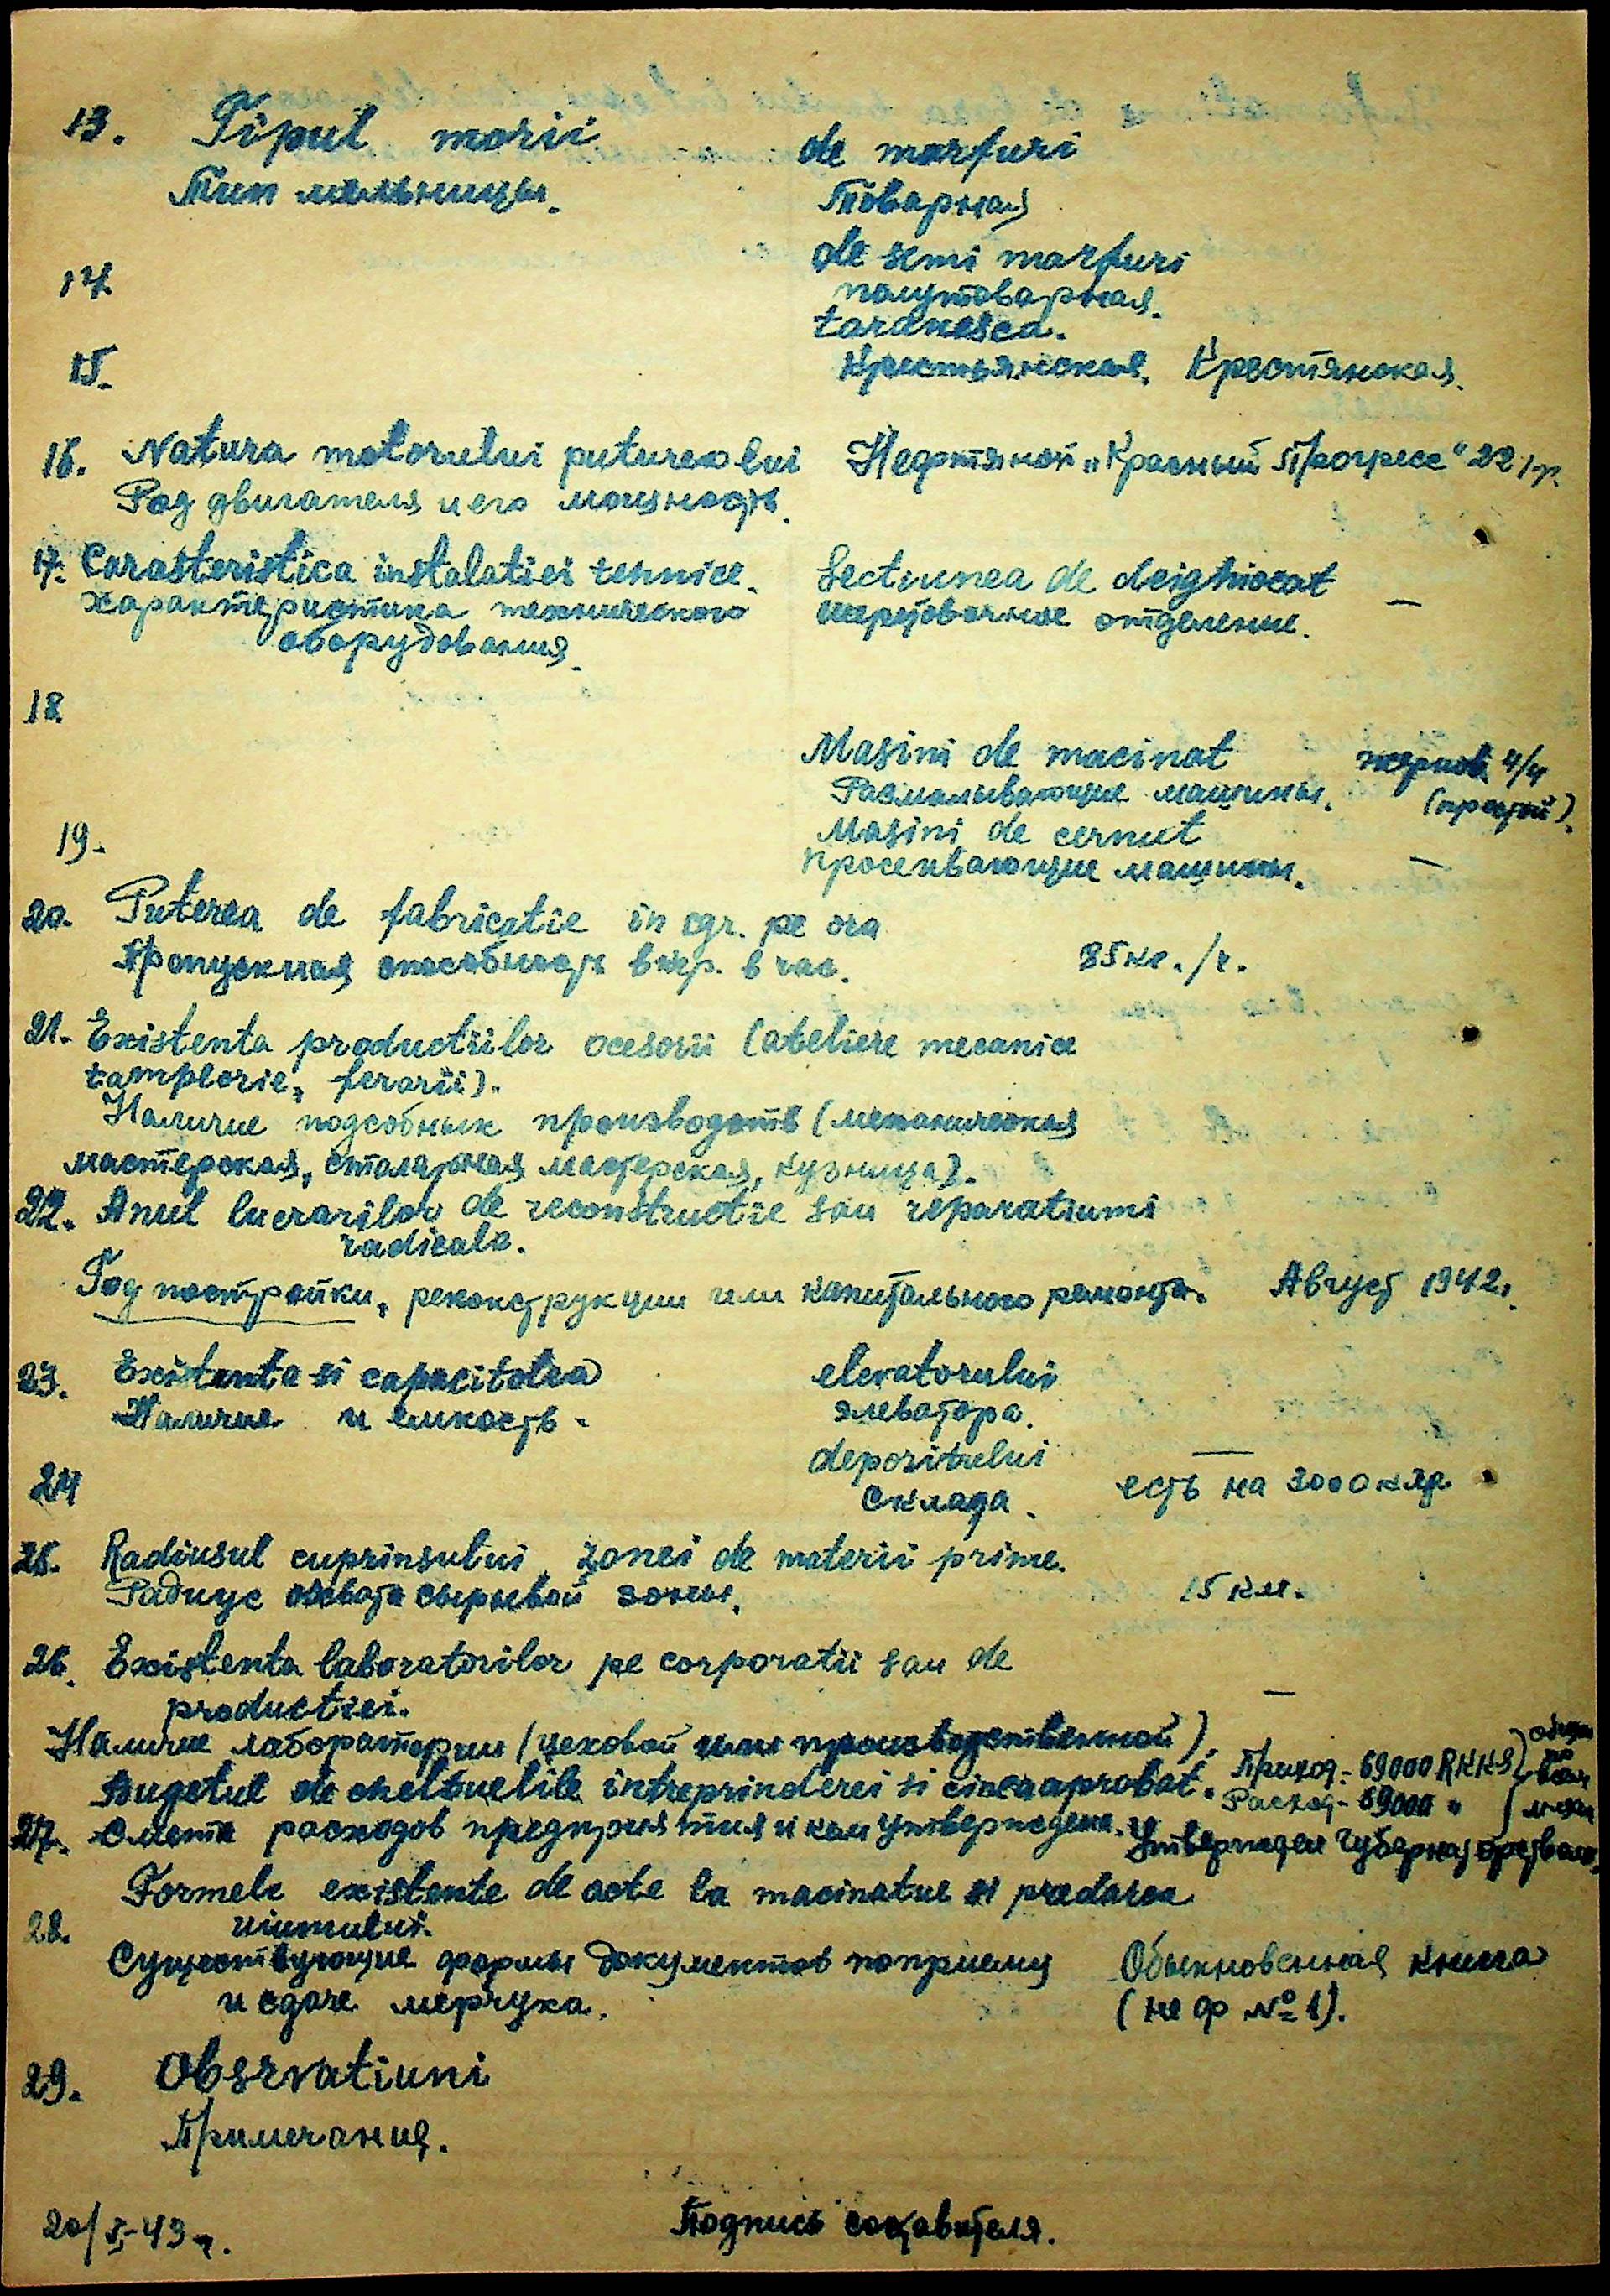 13. Tipul morii de marfuri
Тип мельницы. Товарная
14 de semi marfuri
полутоварная.
taranesca.
15. Крестьянская. Крестянская.
16. Natura motorului puturea lui Нефтяной „Красный Прогресс" 22
Род двигателя и его мощность.
17. Carasteristica instalatiei tehnice. Sectiunea de deighiocat
Характеристика технического отделение. —
оборудования.
18
Masini de macinat жернов 4/4
Размалывающие машины. (простой).
19. Masini de cernut
просеивающие машины. —
20. Puterea de fabricatie in cgr. pe ora
Пропускная способность в кгр. в час. 85 кг./ч.
21. Existenta productiilor acesorii (ateliere mecanice
tamplorie, ferarii).
Наличие подсобных производств (механическая
мастерская, столярная мастерская, кузница).
22. Anul lucrarilor de reconstructie sau reparatiumi
radicala.
Год постройки, реконструкции или капитального ремонта. Август 1942.
23. Existenta si capacitatea elevatorului
Наличие и емкость. элеватора.
24 depozitului —
склада. есть на 3000 кгр
25. Radiusul cuprinsului zonei de materii prime.
Радиус охвата сырьевой зоны. 15 км.
26. Existenta laboratorilor pe corporatii sau de
productiei. —
Наличие лаборатории (цеховой или производственной).
Bugetul de cheltuelile intreprinderei si cinca aprobat. Приход - 69000 RKKS
Расход - 69000 "
27. Смета расходов предприятия и кем утверждена. Утвержден
Formele existente de acte la macinatue si predarea
28. uiumului.
Существующие формы документов по приему Обыкновенная книга
и сдаче мерчука. (не ф № 1).
29. Observatiuni
Примечания.
20/I-43 г. Подпись составителя.